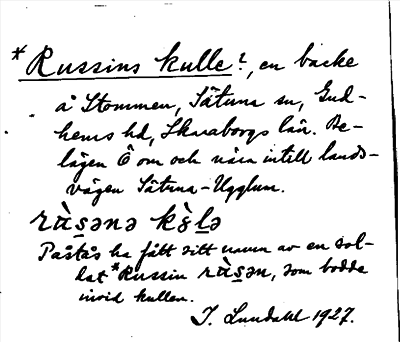 *Russins kulle?, en backe
å Stommen, Sätuna sn, Gud-
hems hd, Skaraborgs län. Be-
lägen Ö om och nära intill lands-
vägen Sätuna-Ugglum.
rɑ̀s̲ənə kɞ̀l̲ə
Påstås ha fått sitt namn av en sol-
dat *Russin rɑ̀s̲ən, som bodde
invid kullen.
I. Lundahl 1927.